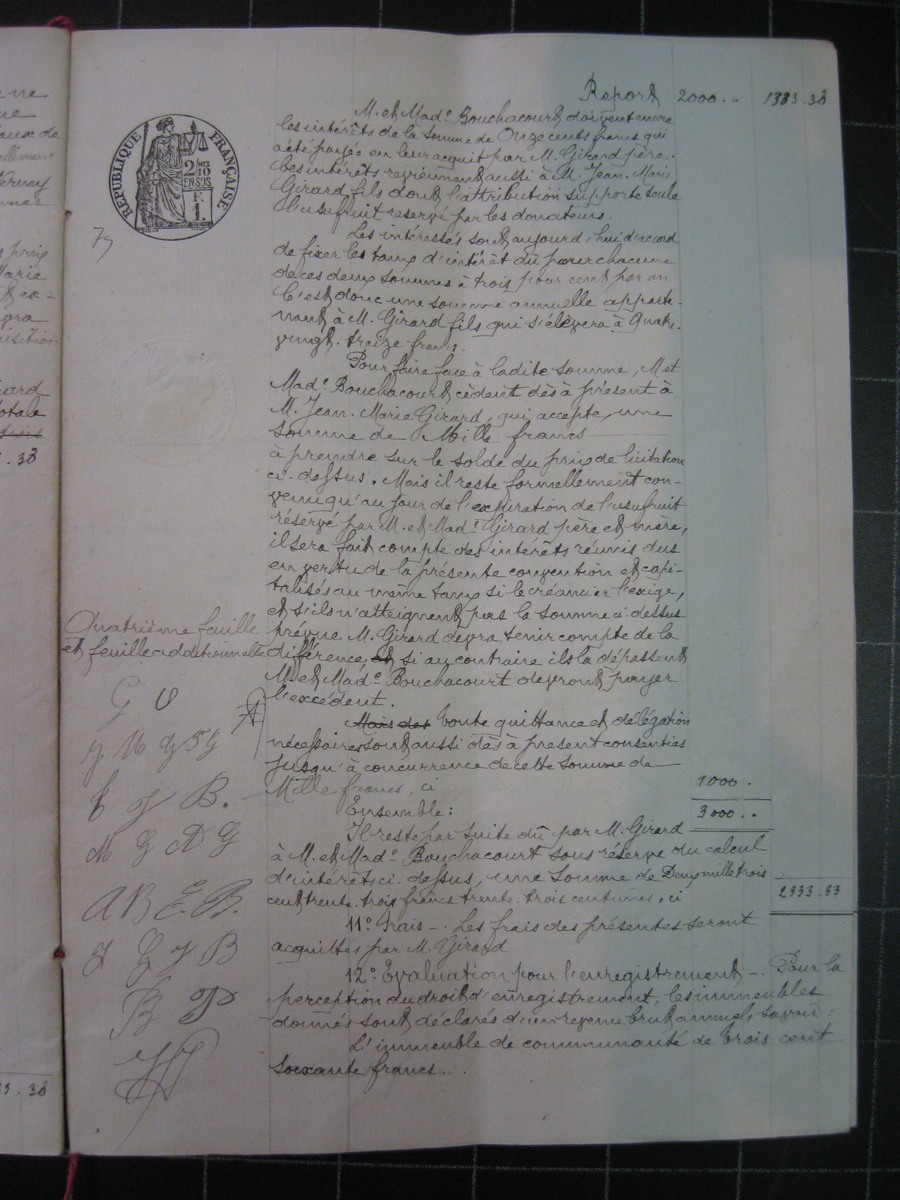 Report 2000 .. 1383.33
M. et Madᵉ Bouchacourt doivent encore
les intérêts de la somme de Onze cents francs qui
a été payée en leur acquit par M. Girard père.
Ces intérêts reviennent aussi à M. Jean-Marie
Girard fils dont l'attribution supporte seule
l'usufruit reservé par les donateurs.
RÉPUBLIQUE FRANÇAISE
2/10 EN SUS
F.
1.
Les intéressés sont aujourd'hui d'accord
de fixer les taux d'intérêt dû pour chacune
de ces deux sommes à trois pour cent par an
C'est donc une somme annuelle apparte-
nant à M. Girard fils qui s'élèvera à Quatre
vingt-treize francs.
Pour faire face à ladite somme, M et
Madᵉ Bouchacourt cèdent dès à présent à
M. Jean-Marie Girard, qui accepte, une
somme de Mille francs
à prendre sur le solde du prix de licitation
ci-dessus. Mais il reste formellement con-
venu qu'au jour de l'expiration de l'usufruit
réservé par M. et Madᵉ Girard père et mère,
il sera fait compte des intérêts réunis dus
en vertu de la présente convention et capi-
talisés au même taux si le créancier l'exige,
et s'ils n'atteignent pas la somme ci-dessus
prévue M. Girard devra tenir compte de la
différence, et si au contraire ils la dépassent
M. et Madᵉ Bouchacourt devront payer
l'excédent.
Quatrième feuille
et feuille
Mais des toute quittance et délégation
nécessaires sont aussi dès à présent consenties
jusqu'à concurrence de cette somme de
Mille francs, ci 1000 .
Ensemble: 3000 ..
Il reste par suite dû par M. Girard
à M. et Madᵉ Bouchacourt sous réserve du calcul
d'intérêts ci-dessus, une somme de Deux mille trois
cent trente-trois francs trente-trois centimes, ci 2333.33
11° Frais -. Les frais des présentes seront
acquittés par M. Girard
12° Evaluation pour l'enregistrement -. Pour la
perception du droit d'enregistrement, les immeubles
donnés sont déclarés d'un revenu brut annuel, savoir:
L'immeuble de communauté de trois cent
soixante francs..
G
B.
M G A G
A B E. B.
J G J B
B P